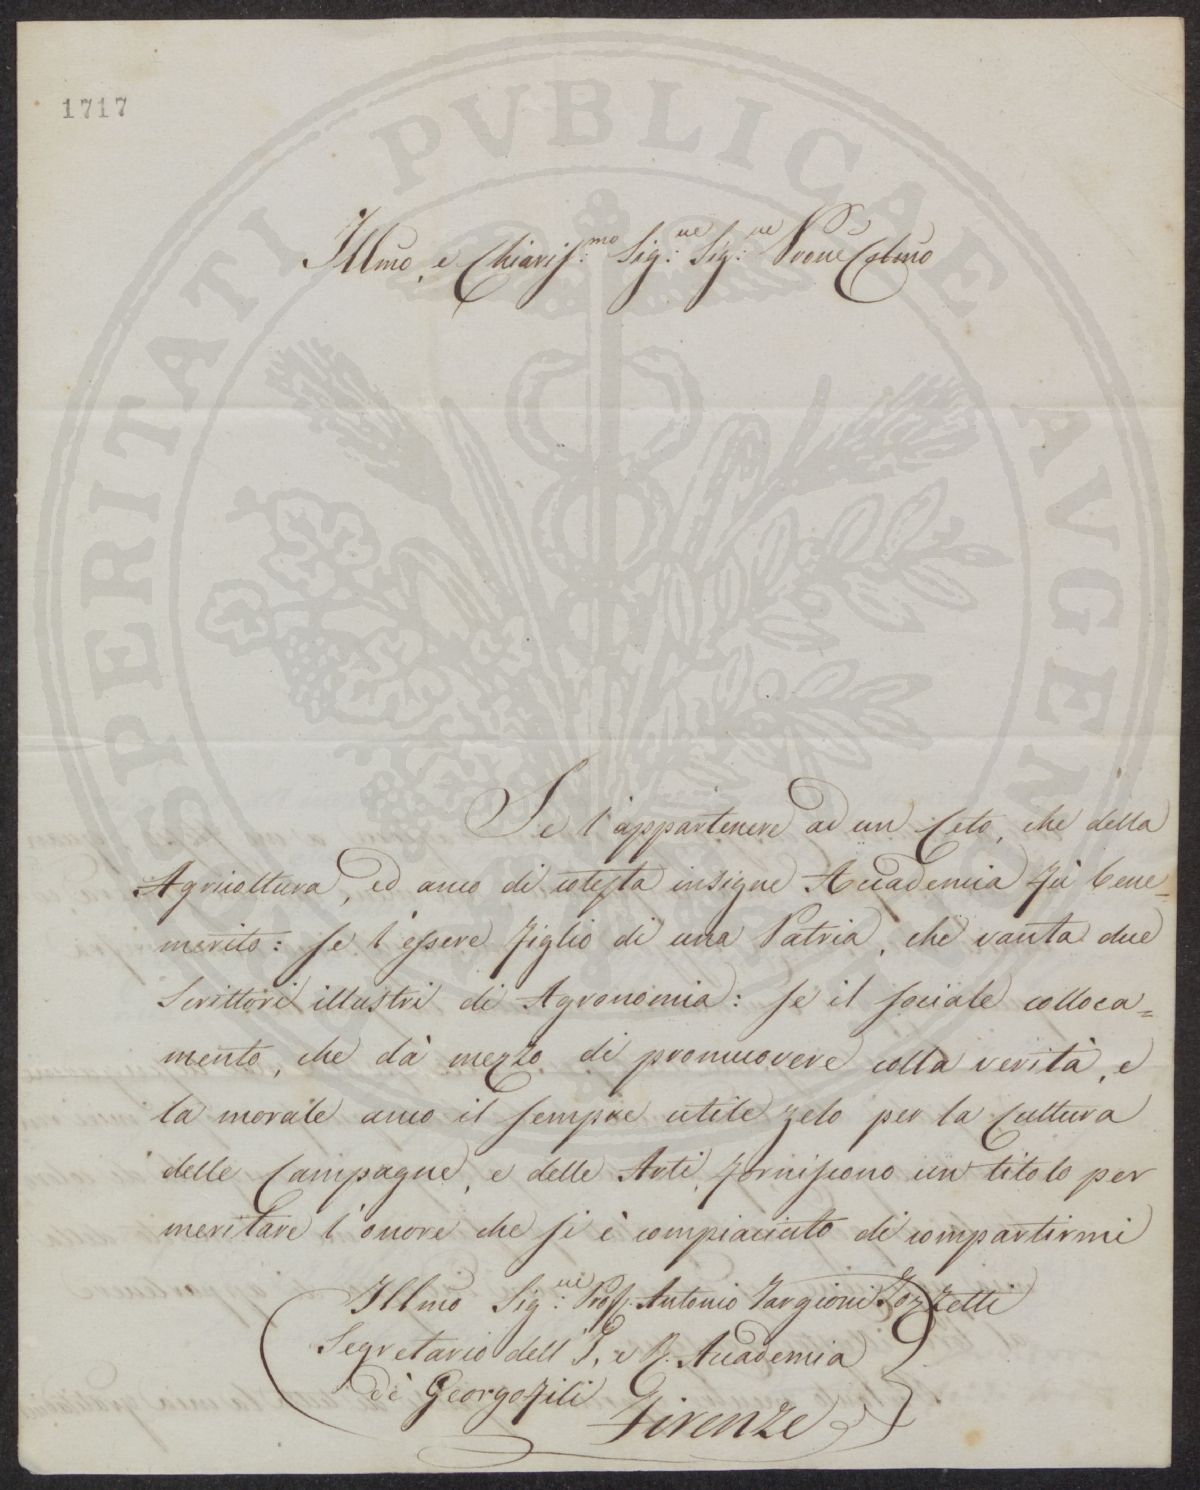 1717
Illmo, e Chiaris:mo Sig:re Sig:re Prone Colmo
Se l'appartenere ad un Ceto, che della
Agricoltura, ed anco di cotesta insigne Accademia fù bene=
merito: se l'essere figlio di una Patria, che vanta due
Scrittori illustri di Agronomia: se il sociale colloca=
mento, che dà mezzo di promuovere colla verità, e
la morale anco il sempre utile zelo per la Cultura
delle Campagne, e delle Arti, forniscono un titolo per
meritare l'onore che si è compiaciuto di compartirmi
Illmo Sig:re Prof. Antonio Targioni Tozzetti
Segretario dell'I. e R. Accademia
de' Georgofili
Firenze
PROSPERITATI PVBLICAE AVGENDAE